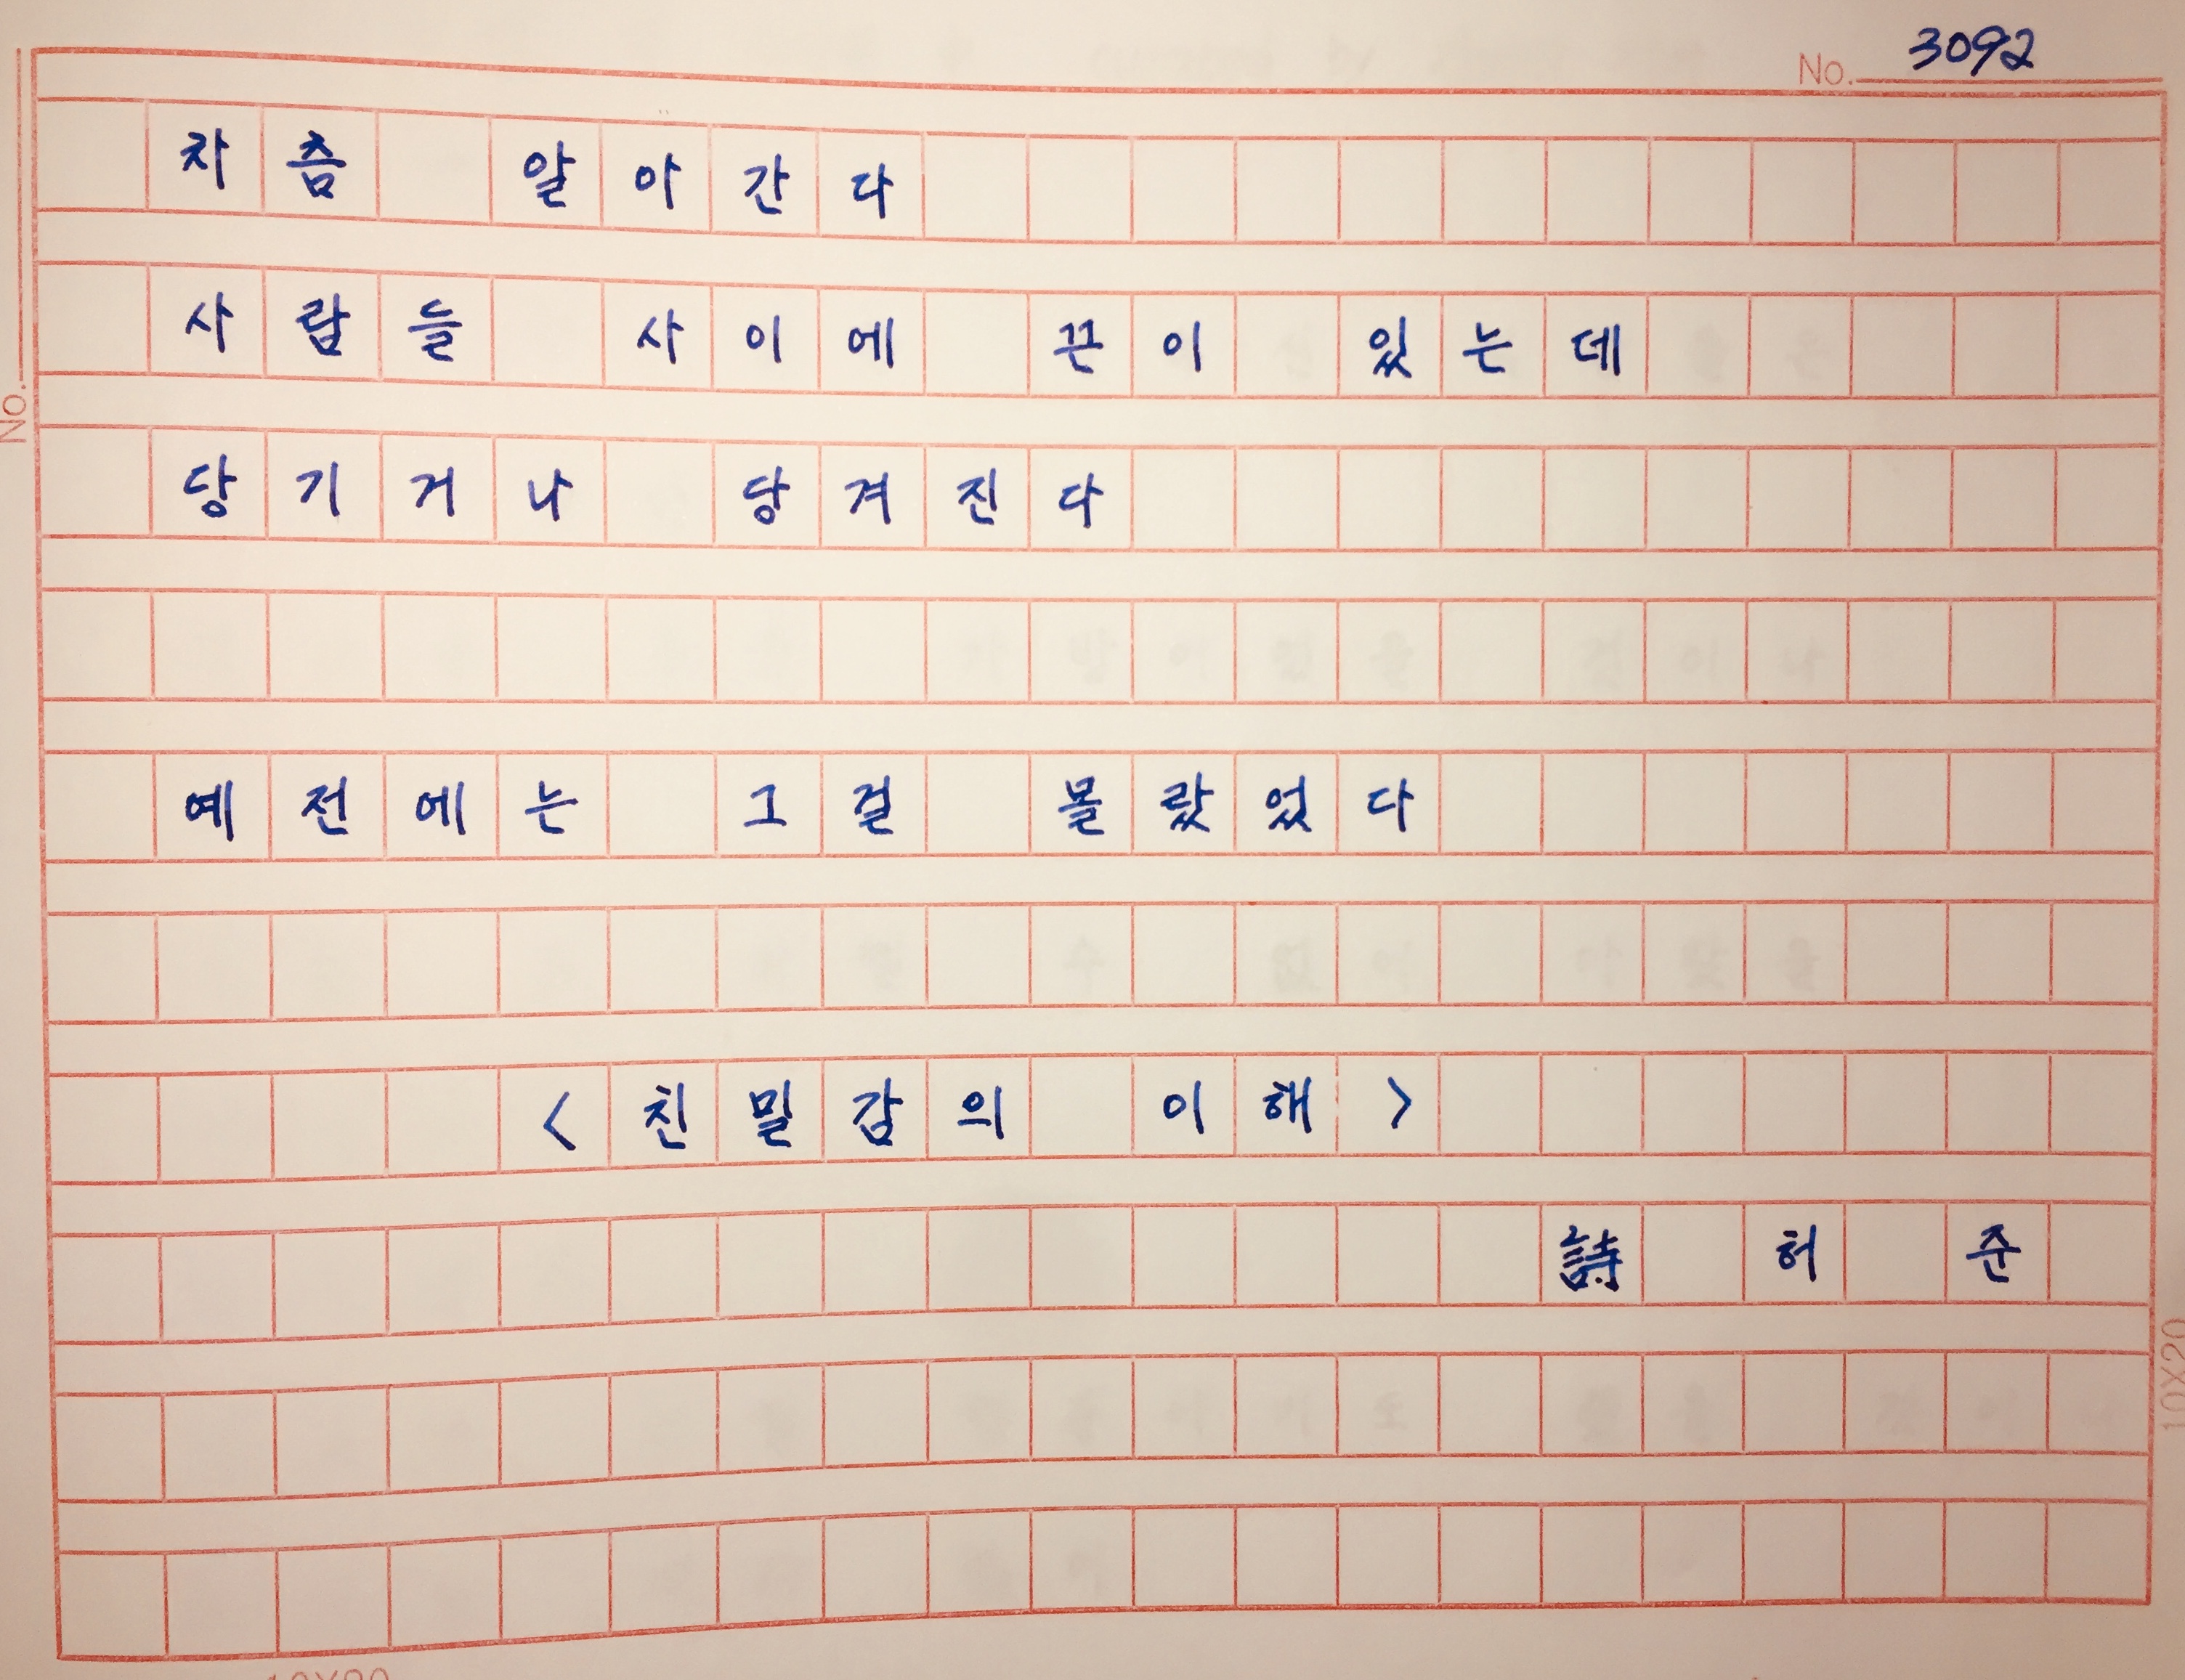 No. 3092
차츰 알아간다
사람들 사이에 끈이 있는데
당기거나 당겨진다
예전에는 그걸 몰랐었다
<친밀감의 이해>
詩 허 준
No.
10X20
10X20